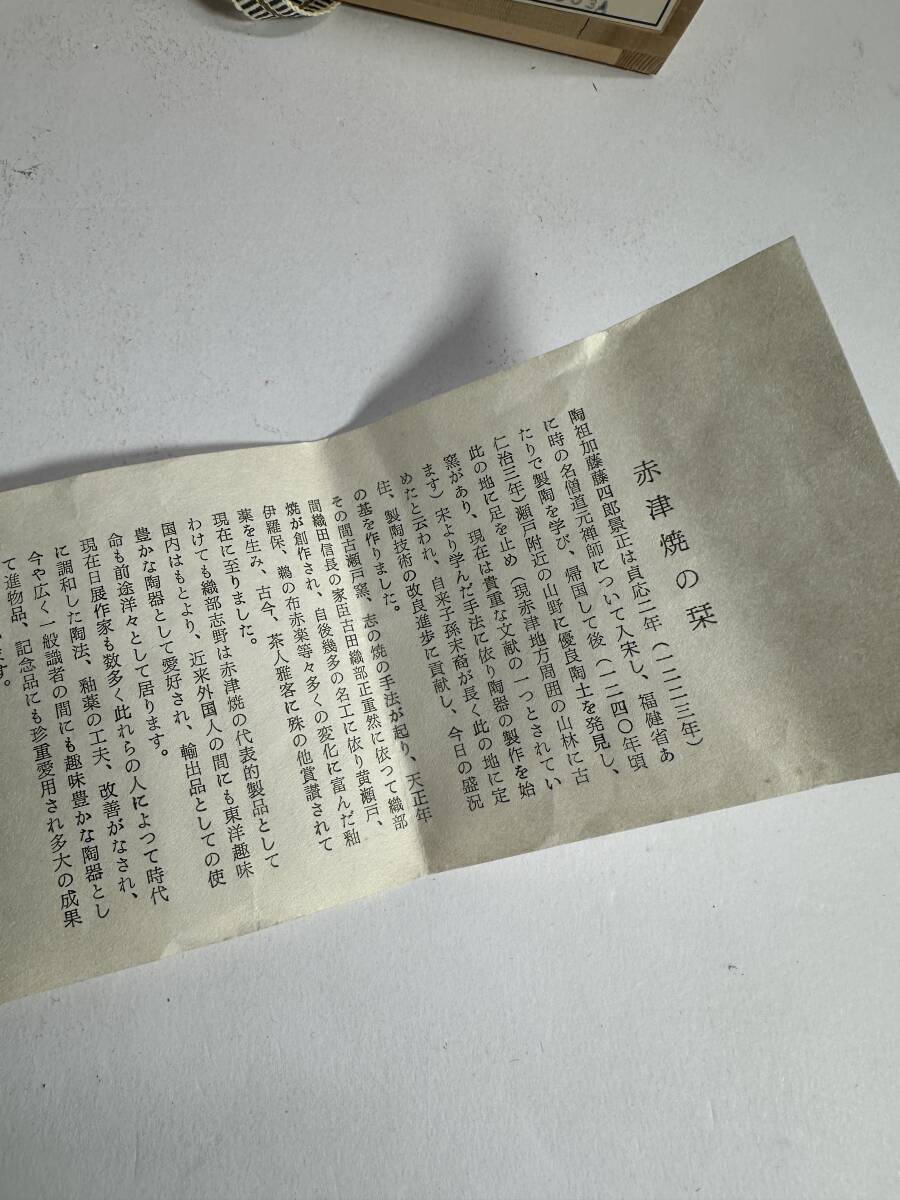 赤津焼の栞
陶祖加藤藤四郎景正は貞応二年(一二二三年)
に時の名僧道元禅師について入宋し、福健省あ
たりで製陶を学び、帰国して後(一二四〇年頃
仁治三年)瀬戸附近の山野に優良陶土を発見し、
此の地に足を止め(現赤津地方周囲の山林に古
窯があり、現在は貴重な文献の一つとされてい
ます)宋より学んだ手法に依り陶器の製作を始
めたと云われ、自来子孫末裔が長く此の地に定
住、製陶技術の改良進歩に貢献し、今日の盛況
の基を作りました。
その間古瀬戸窯、志の焼の手法が起り、天正年
間織田信長の家臣古田織部正重然に依つて織部
焼が創作され、自後幾多の名工に依り黄瀬戸、
伊羅保、鵜の布赤楽等々多くの変化に富んだ釉
薬を生み、古今、茶人雅客に殊の他賞讃されて
現在に至りました。
わけても織部志野は赤津焼の代表的製品として
国内はもとより、近来外国人の間にも東洋趣味
豊かな陶器として愛好され、輸出品としての使
命も前途洋々として居ります。
現在日展作家も数多く此れらの人によつて時代
に調和した陶法、釉薬の工夫、改善がなされ、
今や広く一般識者の間にも趣味豊かな陶器とし
て進物品、記念品にも珍重愛用され多大の成果
ます。